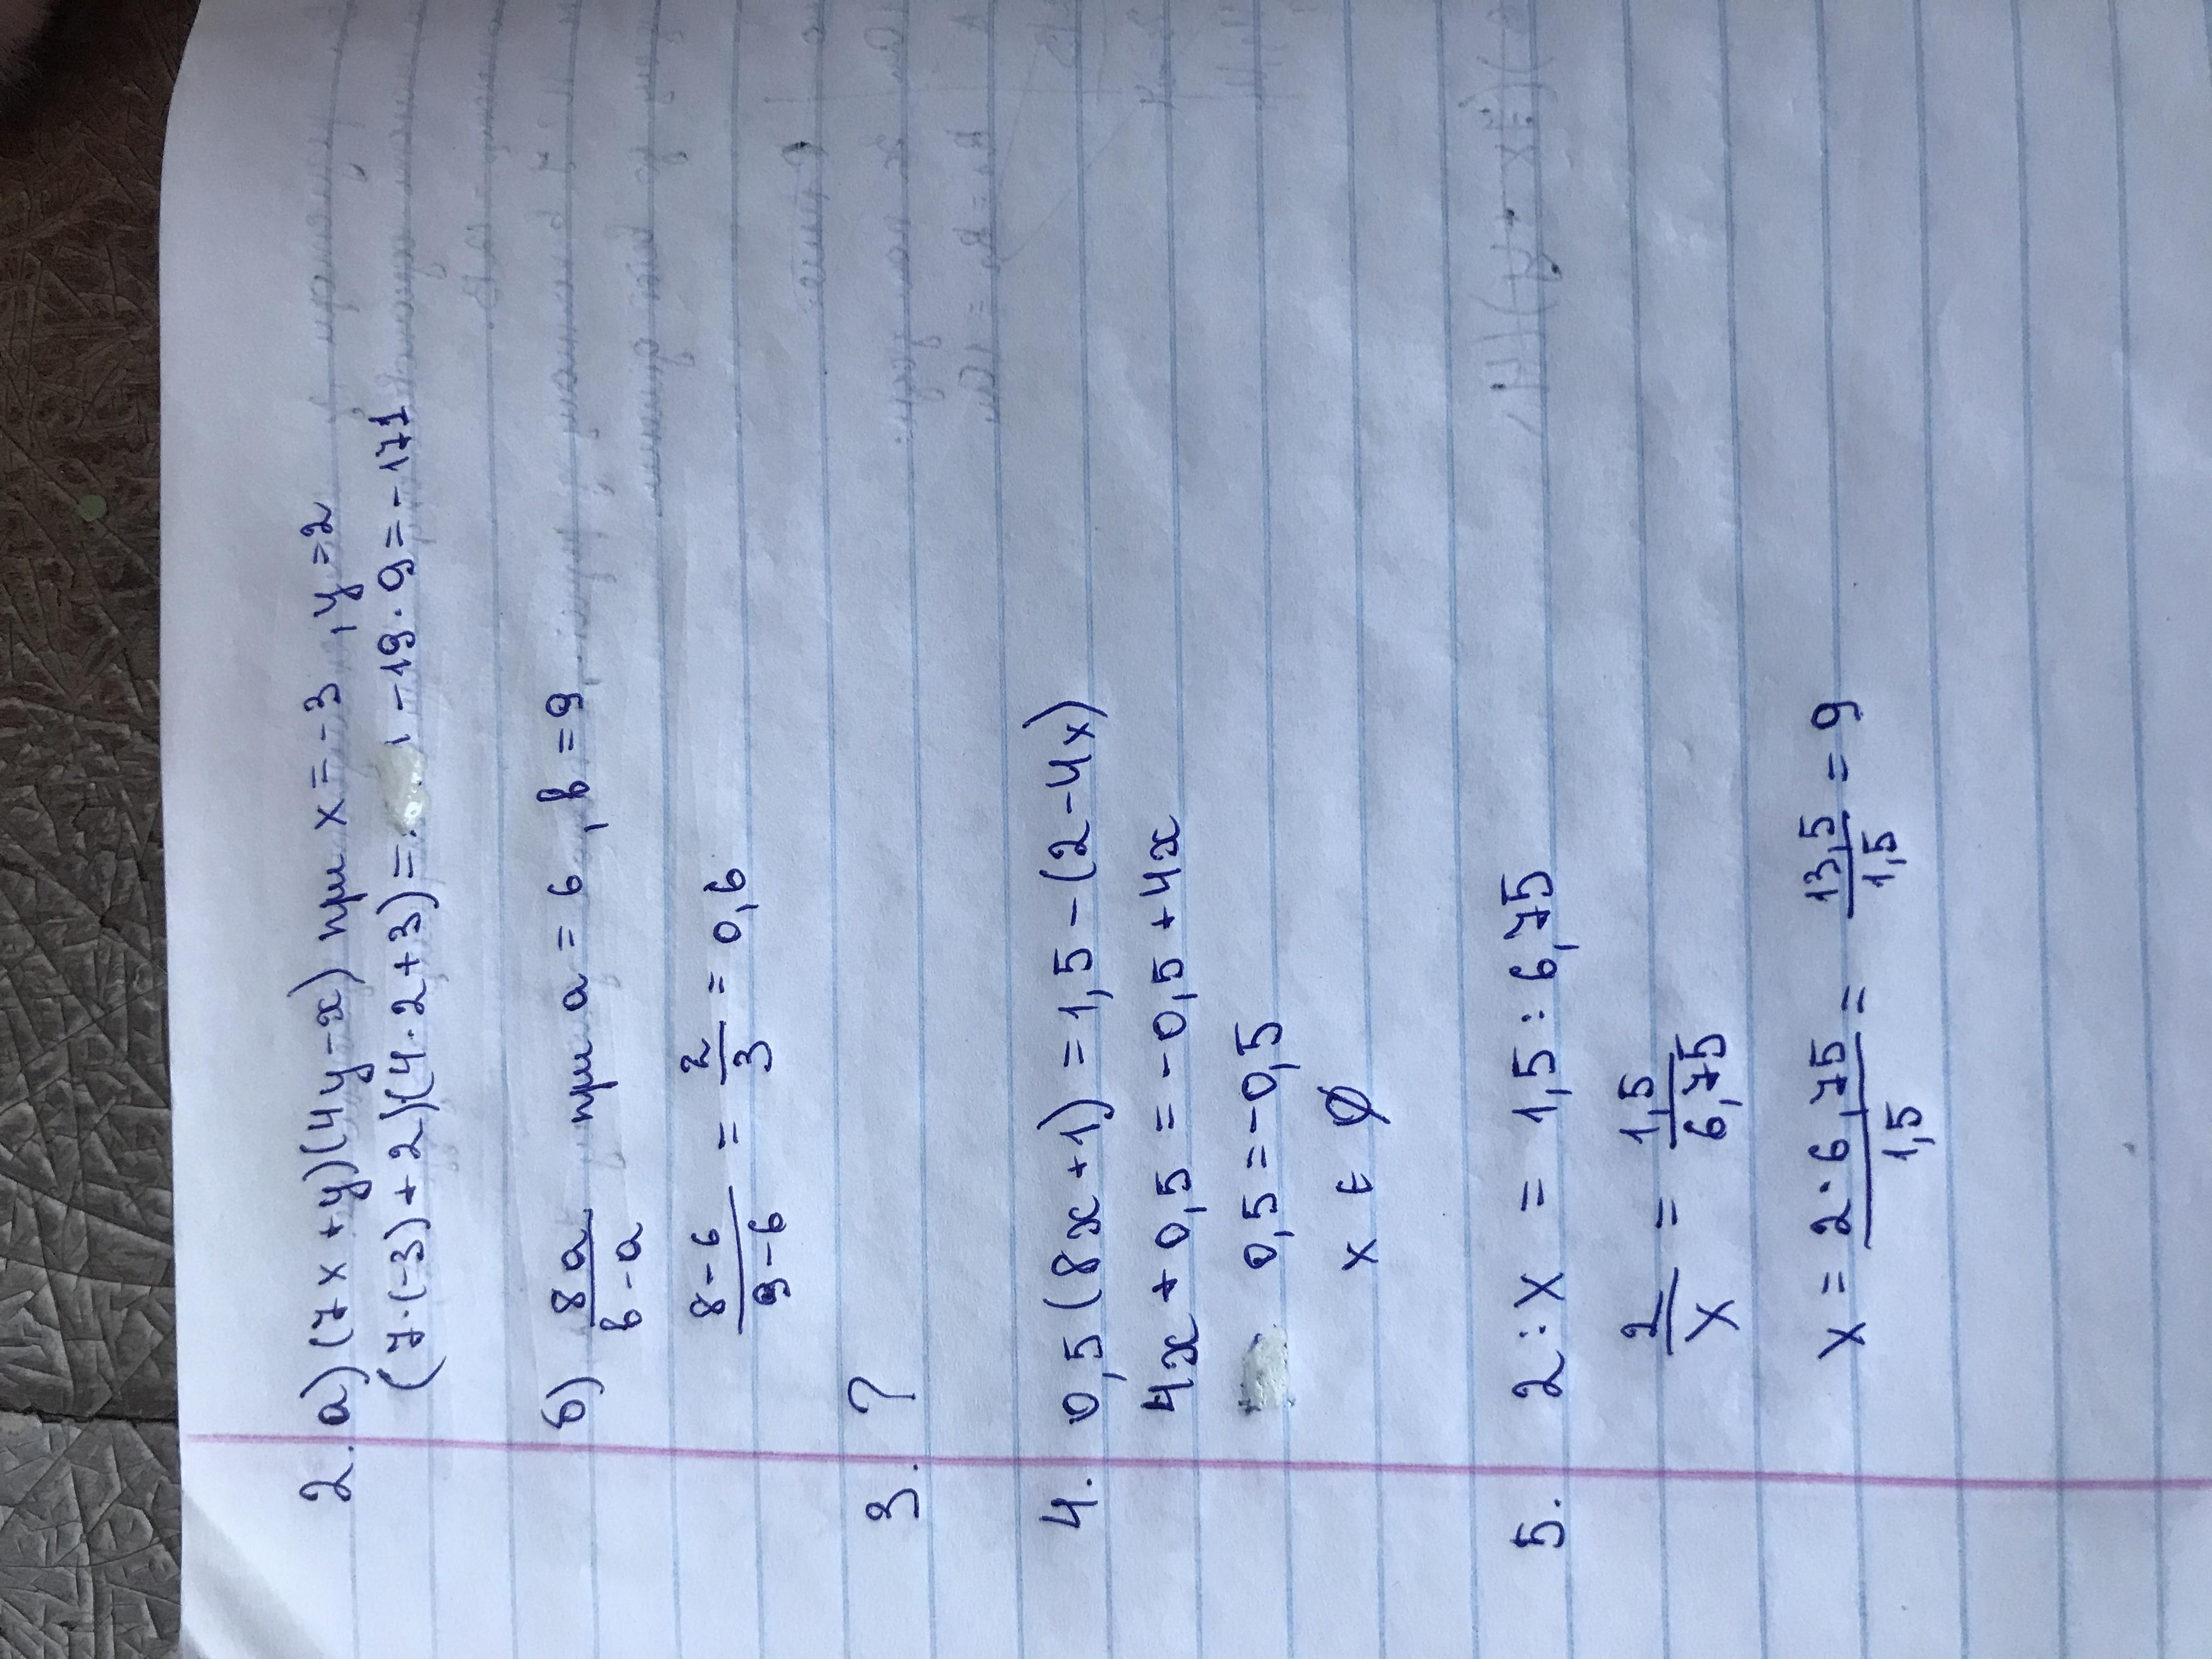 2. а) (7x+y)(4y-x) при x=-3, y=2
(7·(-3)+2)(4·2+3)= -19·9=-171
б) 8a/b-a при a=6, b=9
8-6/9-6 = 2/3 = 0,6
3. ?
4. 0,5(8x+1)=1,5-(2-4x)
4x+0,5=-0,5+4x
0,5=-0,5
x ∈ ∅
5. 2:x = 1,5:6,75
2/x = 1,5/6,75
x = 2·6,75/1,5 = 13,5/1,5 = 9